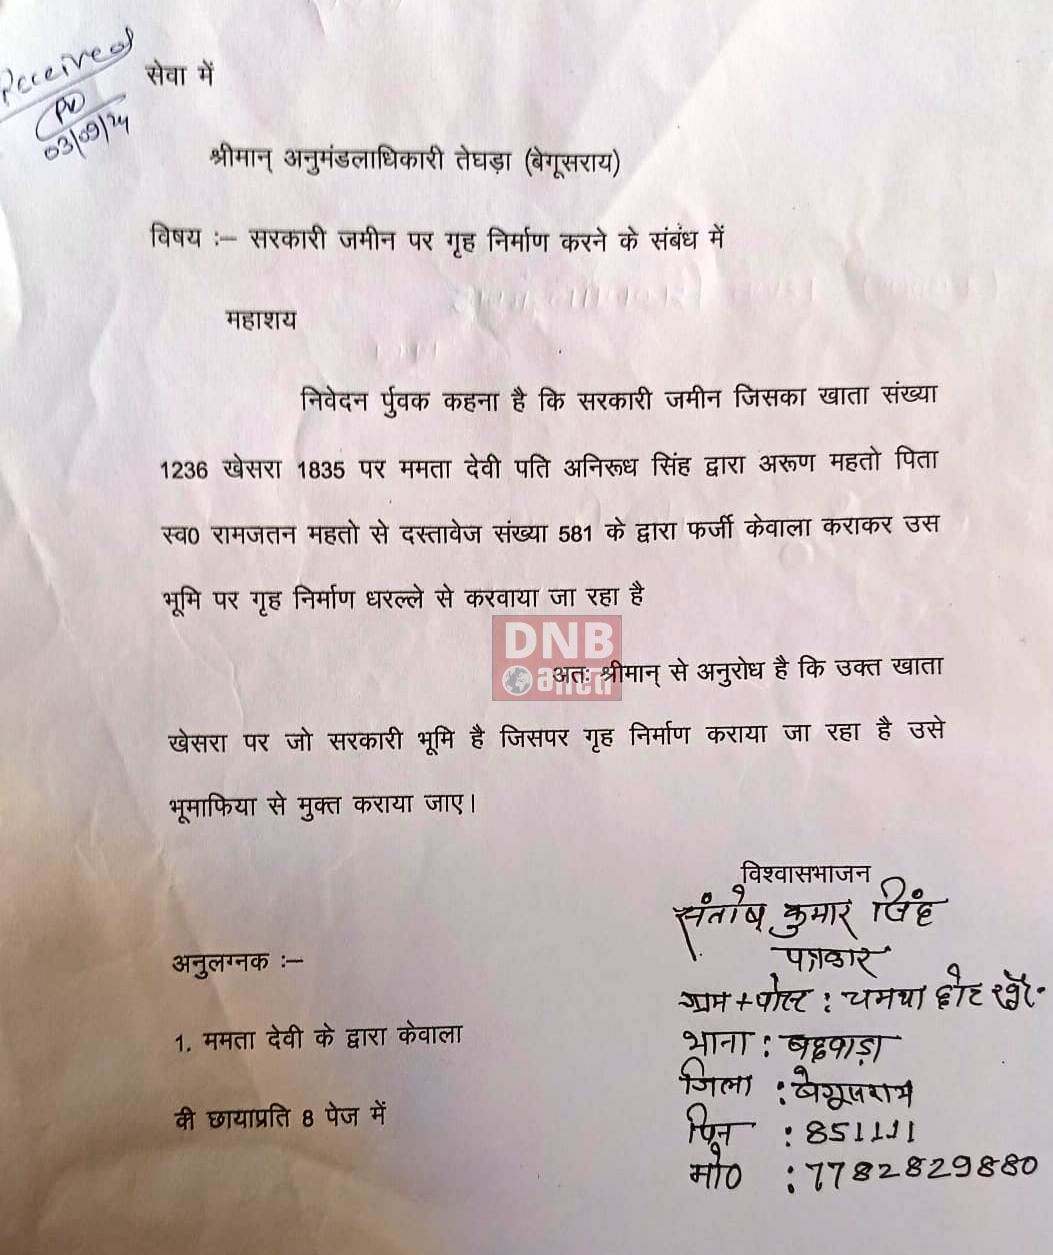 Received
PV
03/09/24
सेवा में
श्रीमान् अनुमंडलाधिकारी तेघड़ा (बेगूसराय)
विषय :– सरकारी जमीन पर गृह निर्माण करने के संबंध में
महाशय
निवेदन र्पुवक कहना है कि सरकारी जमीन जिसका खाता संख्या
1236 खेसरा 1835 पर ममता देवी पति अनिरूध सिंह द्वारा अरूण महतो पिता
स्व0 रामजतन महतो से दस्तावेज संख्या 581 के द्वारा फर्जी केवाला कराकर उस
भूमि पर गृह निर्माण धरल्ले से करवाया जा रहा है
DNB
भारत
अतः श्रीमान् से अनुरोध है कि उक्त खाता
खेसरा पर जो सरकारी भूमि है जिसपर गृह निर्माण कराया जा रहा है उसे
भूमाफिया से मुक्त कराया जाए।
विश्वासभाजन
संतोष कुमार सिंह
पत्रकार
ग्राम + पोस्ट : चमथा छोट
थाना : बछवाड़ा
जिला : बेगूसराय
पिन : 851111
मो0 : 7782829880
अनुलग्नक :–
1. ममता देवी के द्वारा केवाला
की छायाप्रति 8 पेज में